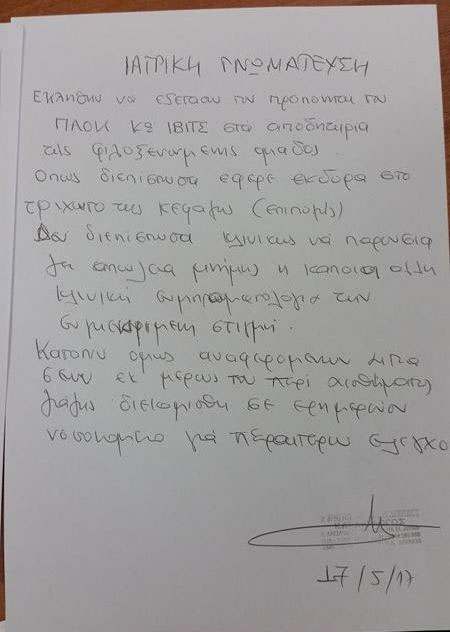 ΙΑΤΡΙΚΗ ΓΝΩΜΑΤΕΥΣΗ
Εκληθην να εξετασω τον προπονητη του
ΠΑΟΚ κο ΙΒΙΤΣ στα αποδητηρια
της φιλοξενουμενης ομαδος.
Οπως διεπιστωσα εφερε εκδορα στο
τριχωτο της κεφαλης (επιπολης)
Δεν διεπιστωσα κλινικως να παρουσια
ζει απωλεια μνημης η καποια αλλη
κλινικη συμπτωματολογια την
συγκεκριμενη στιγμη.
Κατοπιν ομως αναφερομενων
εκ μερους του περι αισθηματος
ζαλης διεκομισθη σε εφημερευον
νοσοκομειο για περαιτερω ελεγχο
17/5/17